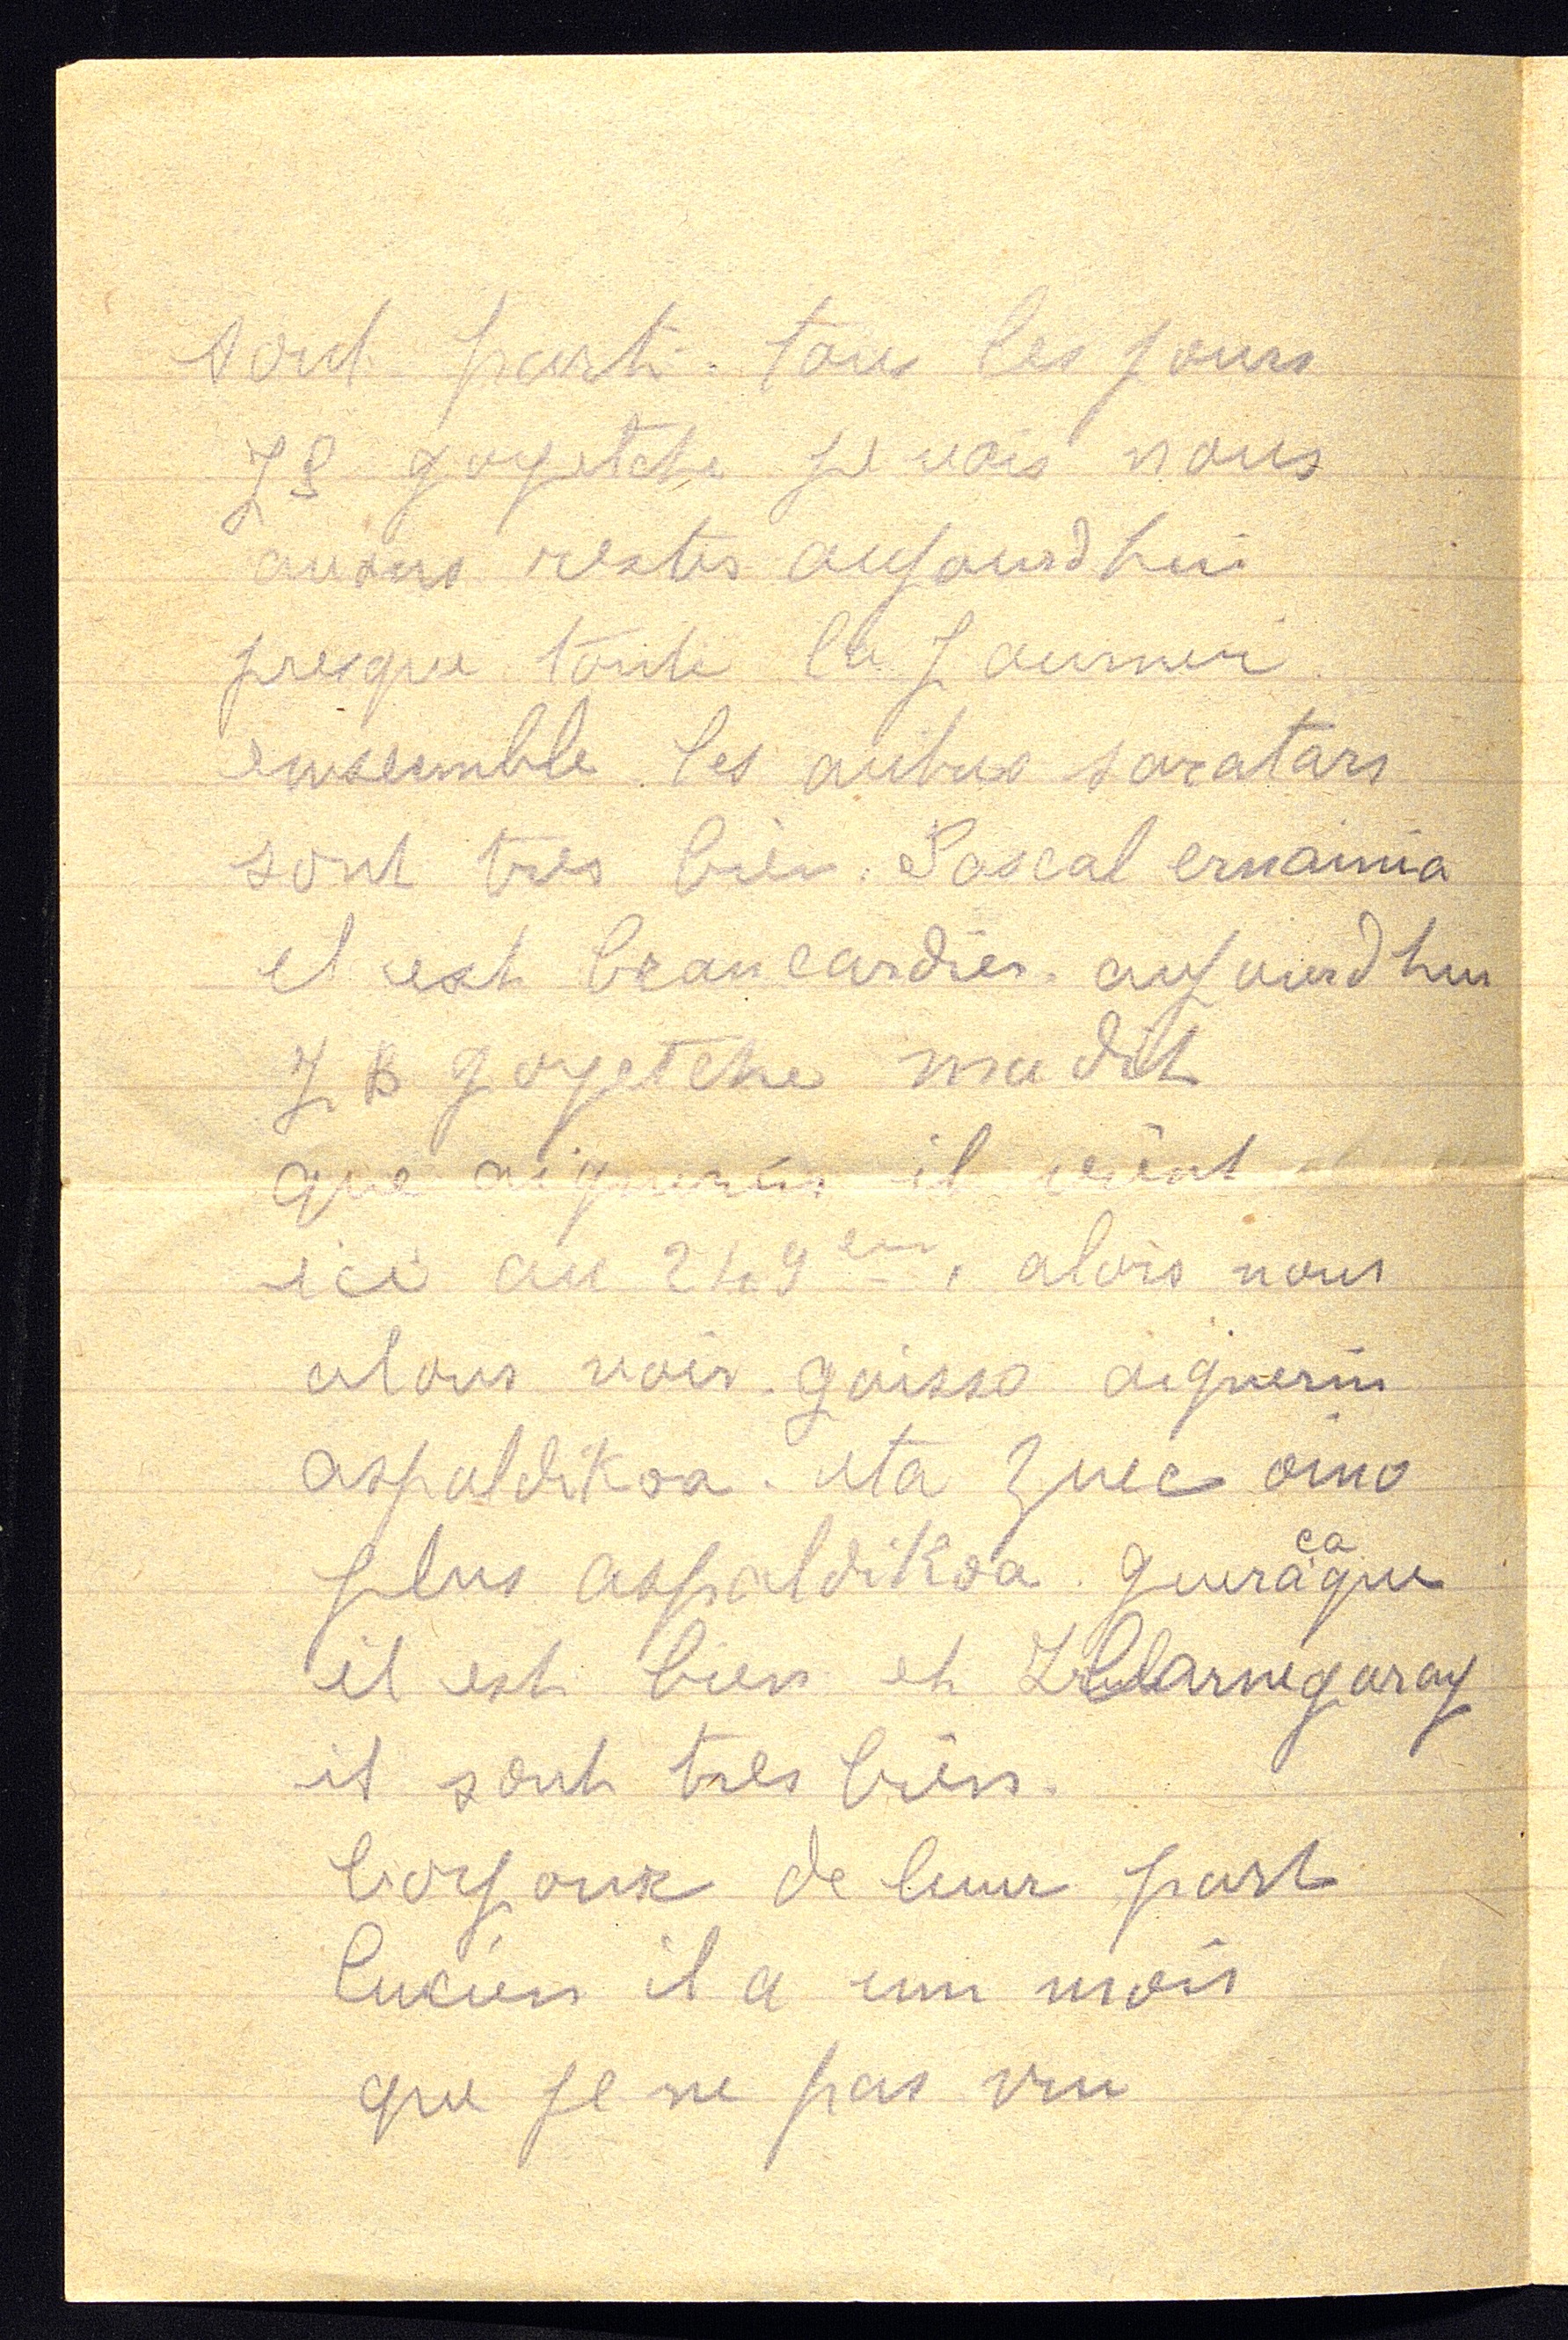 sont parti. tous les jours
JB goyetche je vois nous
avons restes aujourdhui
presque toute la journee
ensemble les autres saratars
sont tres bien. Pascal ernainia
el est brancardier. aujourdhui
J B goyetche ma dit
que aiguerin il vient
ici au 249em, alors nous
alons voir. gaisso aiguerin
aspaldikoa. eta zuec oino
plus aspaldikoa. gueracaque
il est bien et Larnegaray
il sont tres bien.
bonjour de leur part
Lucien il a un mois
que je ne pas vu